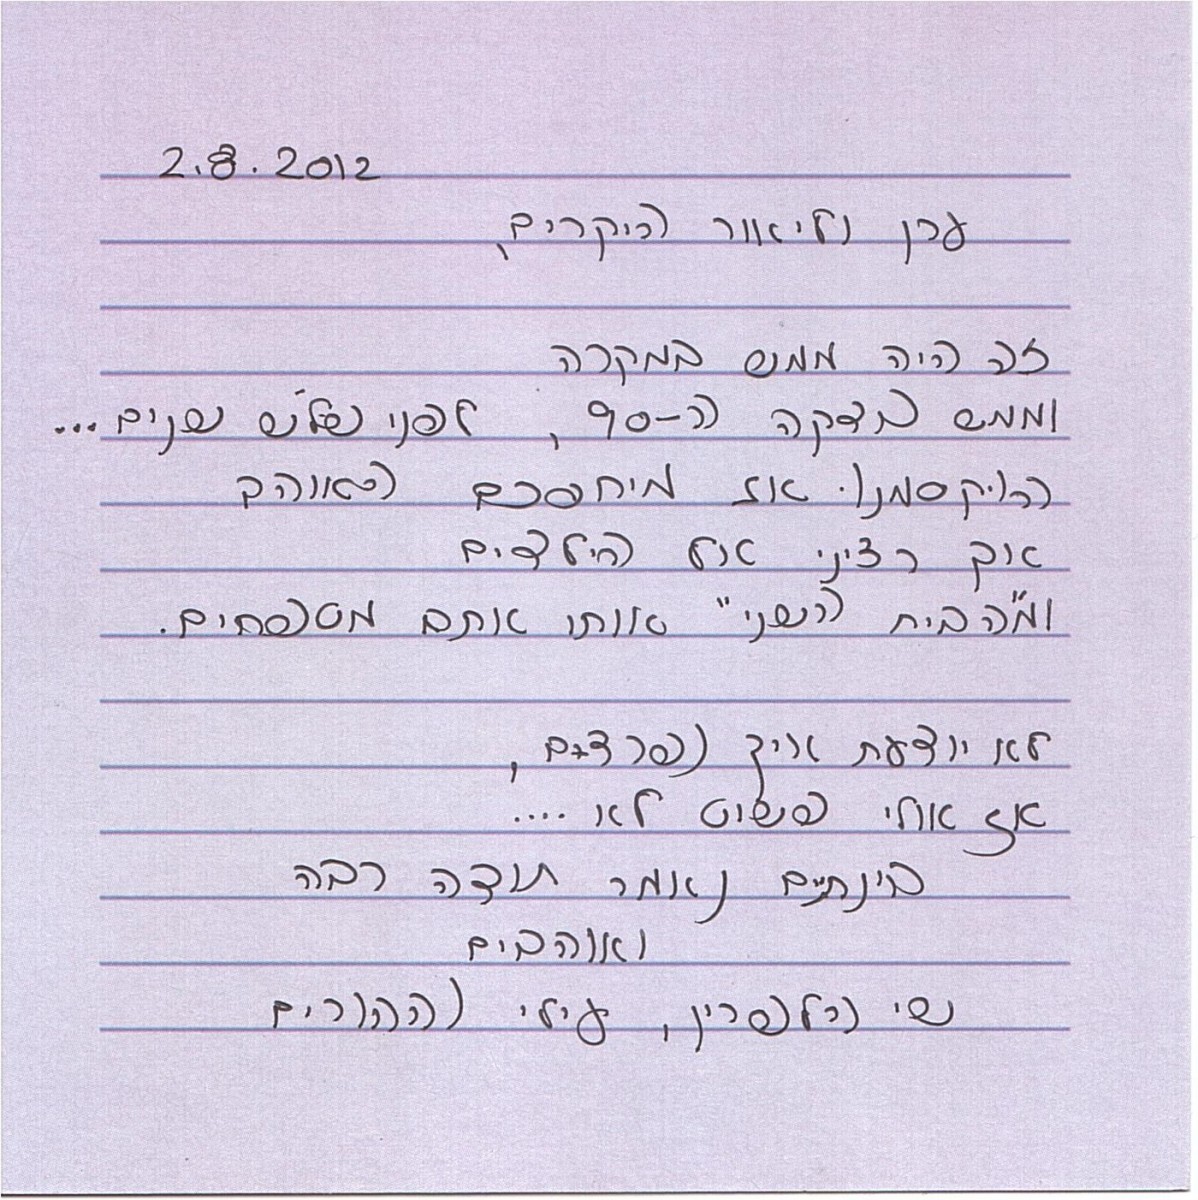 2.8.2012
ערן וליאור היקרים,
זה היה ממש במקרה
וממש בדקה ה-90, לפני שלש שנים...
הוקסמנו אז מיחסכם האוהב
אך רציני אל הילדים
ומ"הבית השני" אותו אתם מטפחים.
לא יודעת איך נפרדים,
אז אולי פשוט לא ....
בינתיים נאמר תודה רבה
ואוהבים
שי, עילי וההורים